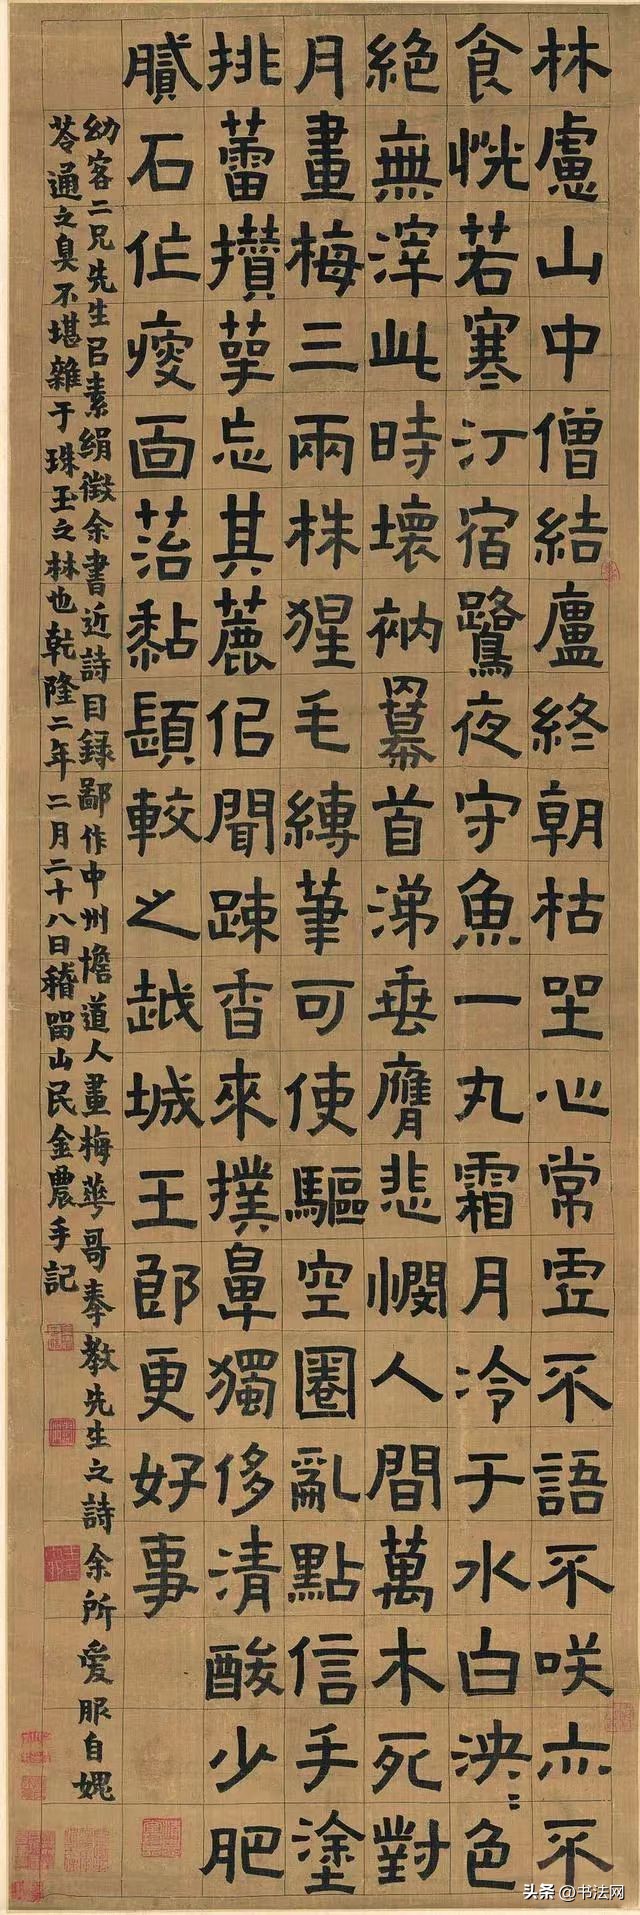 林慮山中僧結廬終朝枯坐心常虛不語不咲亦不
食恍若寒汀宿鷺夜守魚一丸霜月冷于水白泱〻色
絕無滓此時壞衲羃首涕垂膺悲憫人間萬木死對
月畫梅三兩株猩毛縛筆可使驅空圈亂點信手塗
挑蕾攢萼忘其麤但聞疎香來撲鼻獨侈清酸少肥
膩石作瘦面苔黏顋較之越城王郎更好事
幼客二兄先生㠯素絹徵余書近詩目録鄙作中州憺道人畫梅華哥奉教先生之詩余所愛服自媿
苓通之臭不堪雜于珠玉之林也乾隆二年二月二十八日稽留山民金農手記
头条 @书法网